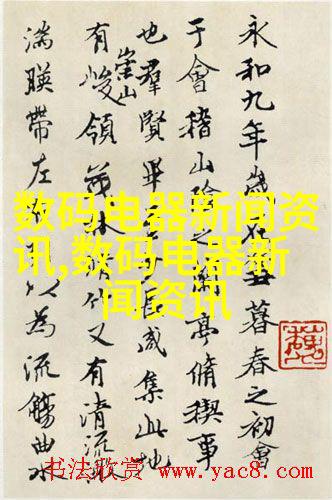 永和九年歲在丑暮春之初會
于會稽山陰之蘭亭脩禊事
也羣賢畢至咸集此地
有崇山峻領茂林竹又有清流激
湍暎帶左以為流觴曲水
数码电器新闻资
讯,数码电器新
闻资讯
书法欣赏 www.yac8.com